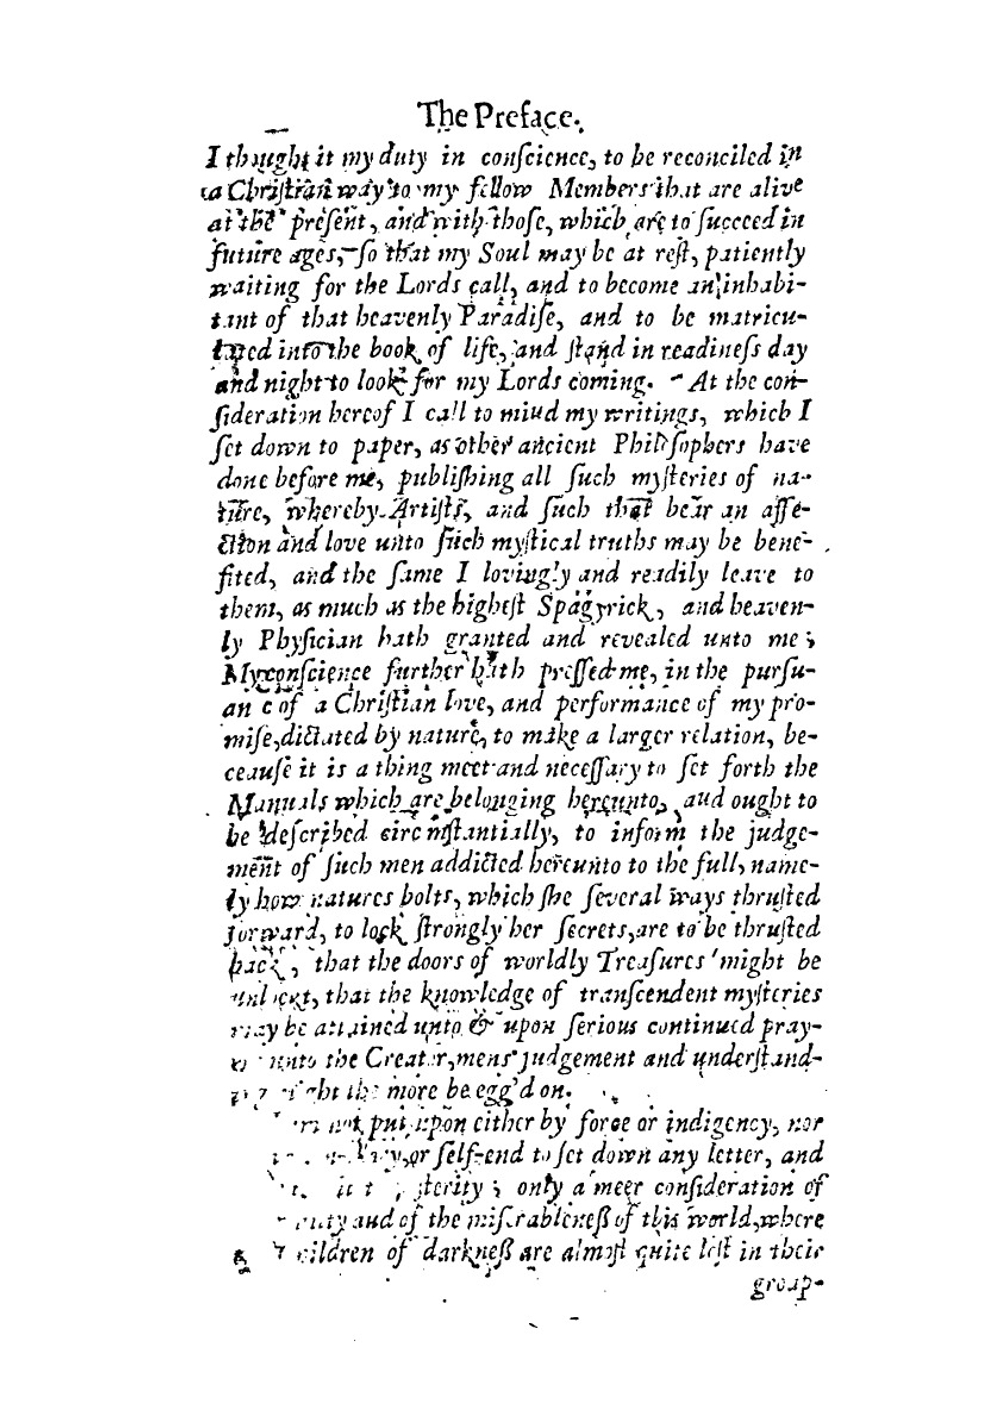 The Preface.
I thought it my duty in conſcience, to be reconciled in
a Chriſtian way to my fellow Members that are alive
at the preſent, and with thoſe, which are to ſucceed in
future ages, ſo that my Soul may be at reſt, patiently
waiting for the Lords call, and to become an inhabi-
tant of that heavenly Paradiſe, and to be matricu-
into the book of life, and ſtand in readineſs day
and night to look for my Lords coming. At the con-
ſideration hereof I call to miud my writings, which I
ſet down to paper, as other ancient Philoſophers have
done before me, publiſhing all ſuch myſteries of na-
ture, whereby Artiſts, and ſuch that bear an affe-
ction and love unto ſuch myſtical truths may be bene-
fited, and the ſame I lovingly and readily leave to
them, as much as the higheſt Spagyrick, and heaven-
ly Phyſician hath granted and revealed unto me;
My conſcience further hath preſſed me, in the purſu-
an c of a Chriſtian love, and performance of my pro-
miſe, dictated by nature, to make a larger relation, be-
ceauſe it is a thing meet and neceſſary to ſet forth the
Manuals which are belonging hereunto, aud ought to
be deſcribed to inform the judge-
ment of ſuch men addicted hereunto to the full, name-
ly how natures bolts, which ſhe ſeveral ways thruſted
forward, to lock ſtrongly her ſecrets, are to be thruſted
back, that the doors of worldly Treaſures might be
that the knowledge of tranſcendent myſteries
may be attained unto & upon ſerious continued pray-
unto the Creator, mens judgement and underſtand-
the more be egg'd on.
not put upon either by force or indigency, nor
or ſelf-end to ſet down any letter, and
only a meer conſideration of
aud of the miſerableneß of this world, where
children of darkneß are almoſt quite loſt in their
group-